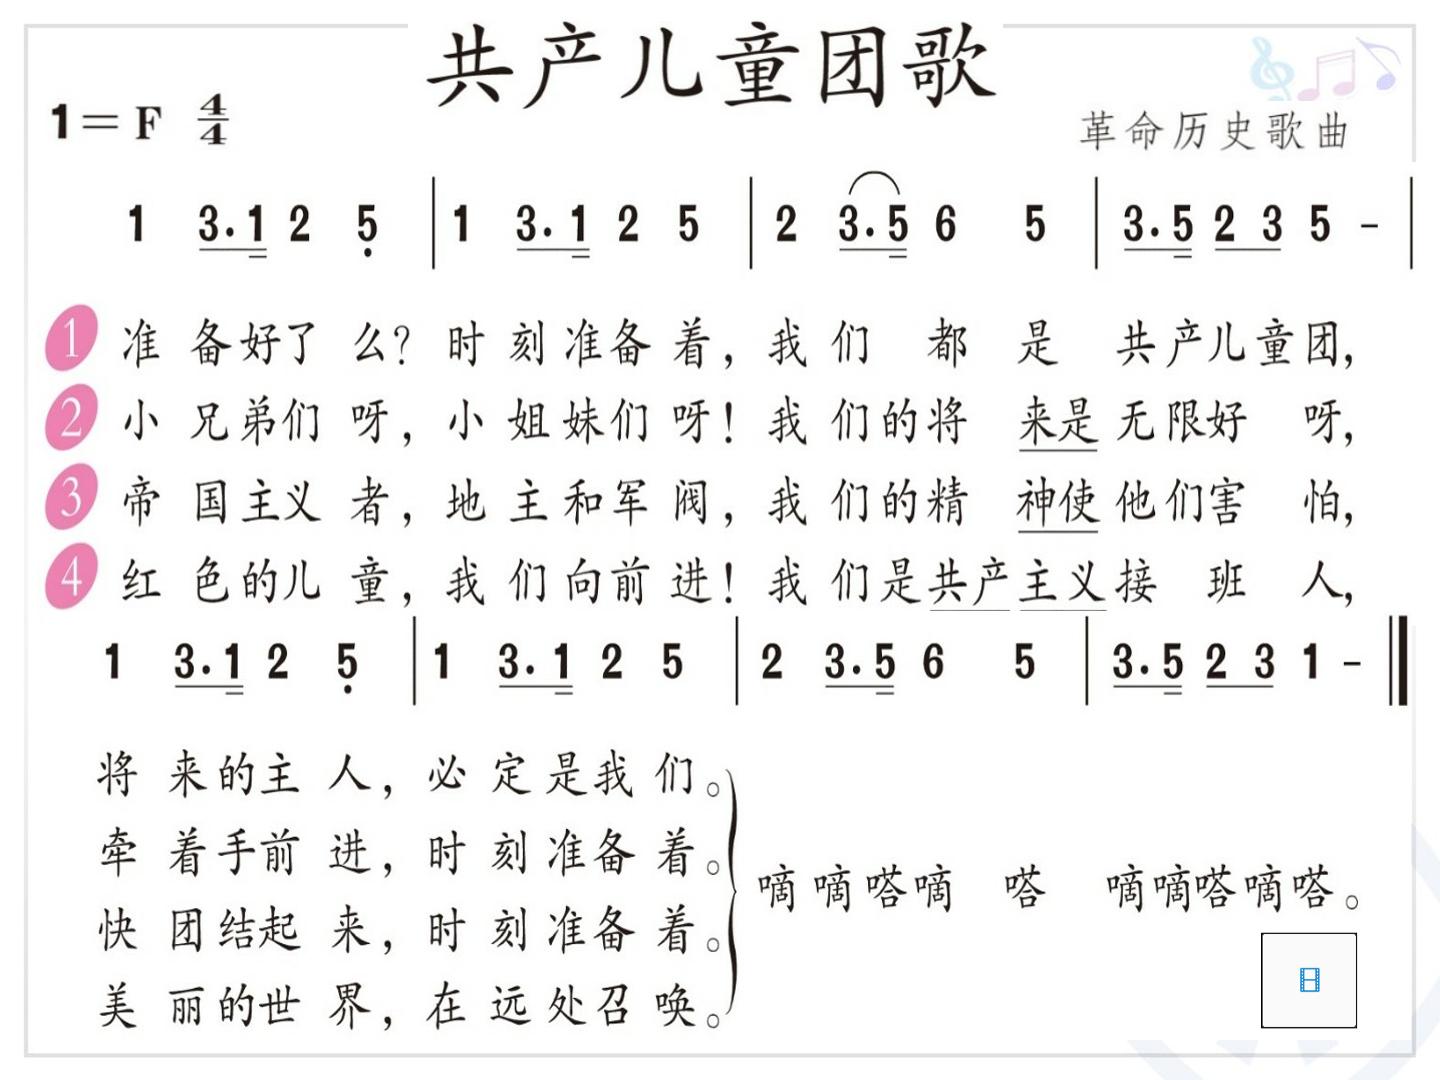 共产儿童团歌
1=F 4/4
革命历史歌曲
1 3.1 2 5̣ | 1 3.1 2 5 | 2 3.5 6 5 | 3.5 2 3 5 - |
1 准备好了么？时刻准备着，我们都是共产儿童团，
2 小兄弟们呀，小姐妹们呀！我们的将来是无限好呀，
3 帝国主义者，地主和军阀，我们的精神使他们害怕，
4 红色的儿童，我们向前进！我们是共产主义接班人，
1 3.1 2 5̣ | 1 3.1 2 5 | 2 3.5 6 5 | 3.5 2 3 1 - ‖
将来的主人，必定是我们。
牵着手前进，时刻准备着。
嘀嘀嗒嘀嗒 嘀嘀嗒嘀嗒。
快团结起来，时刻准备着。
美丽的世界，在远处召唤。